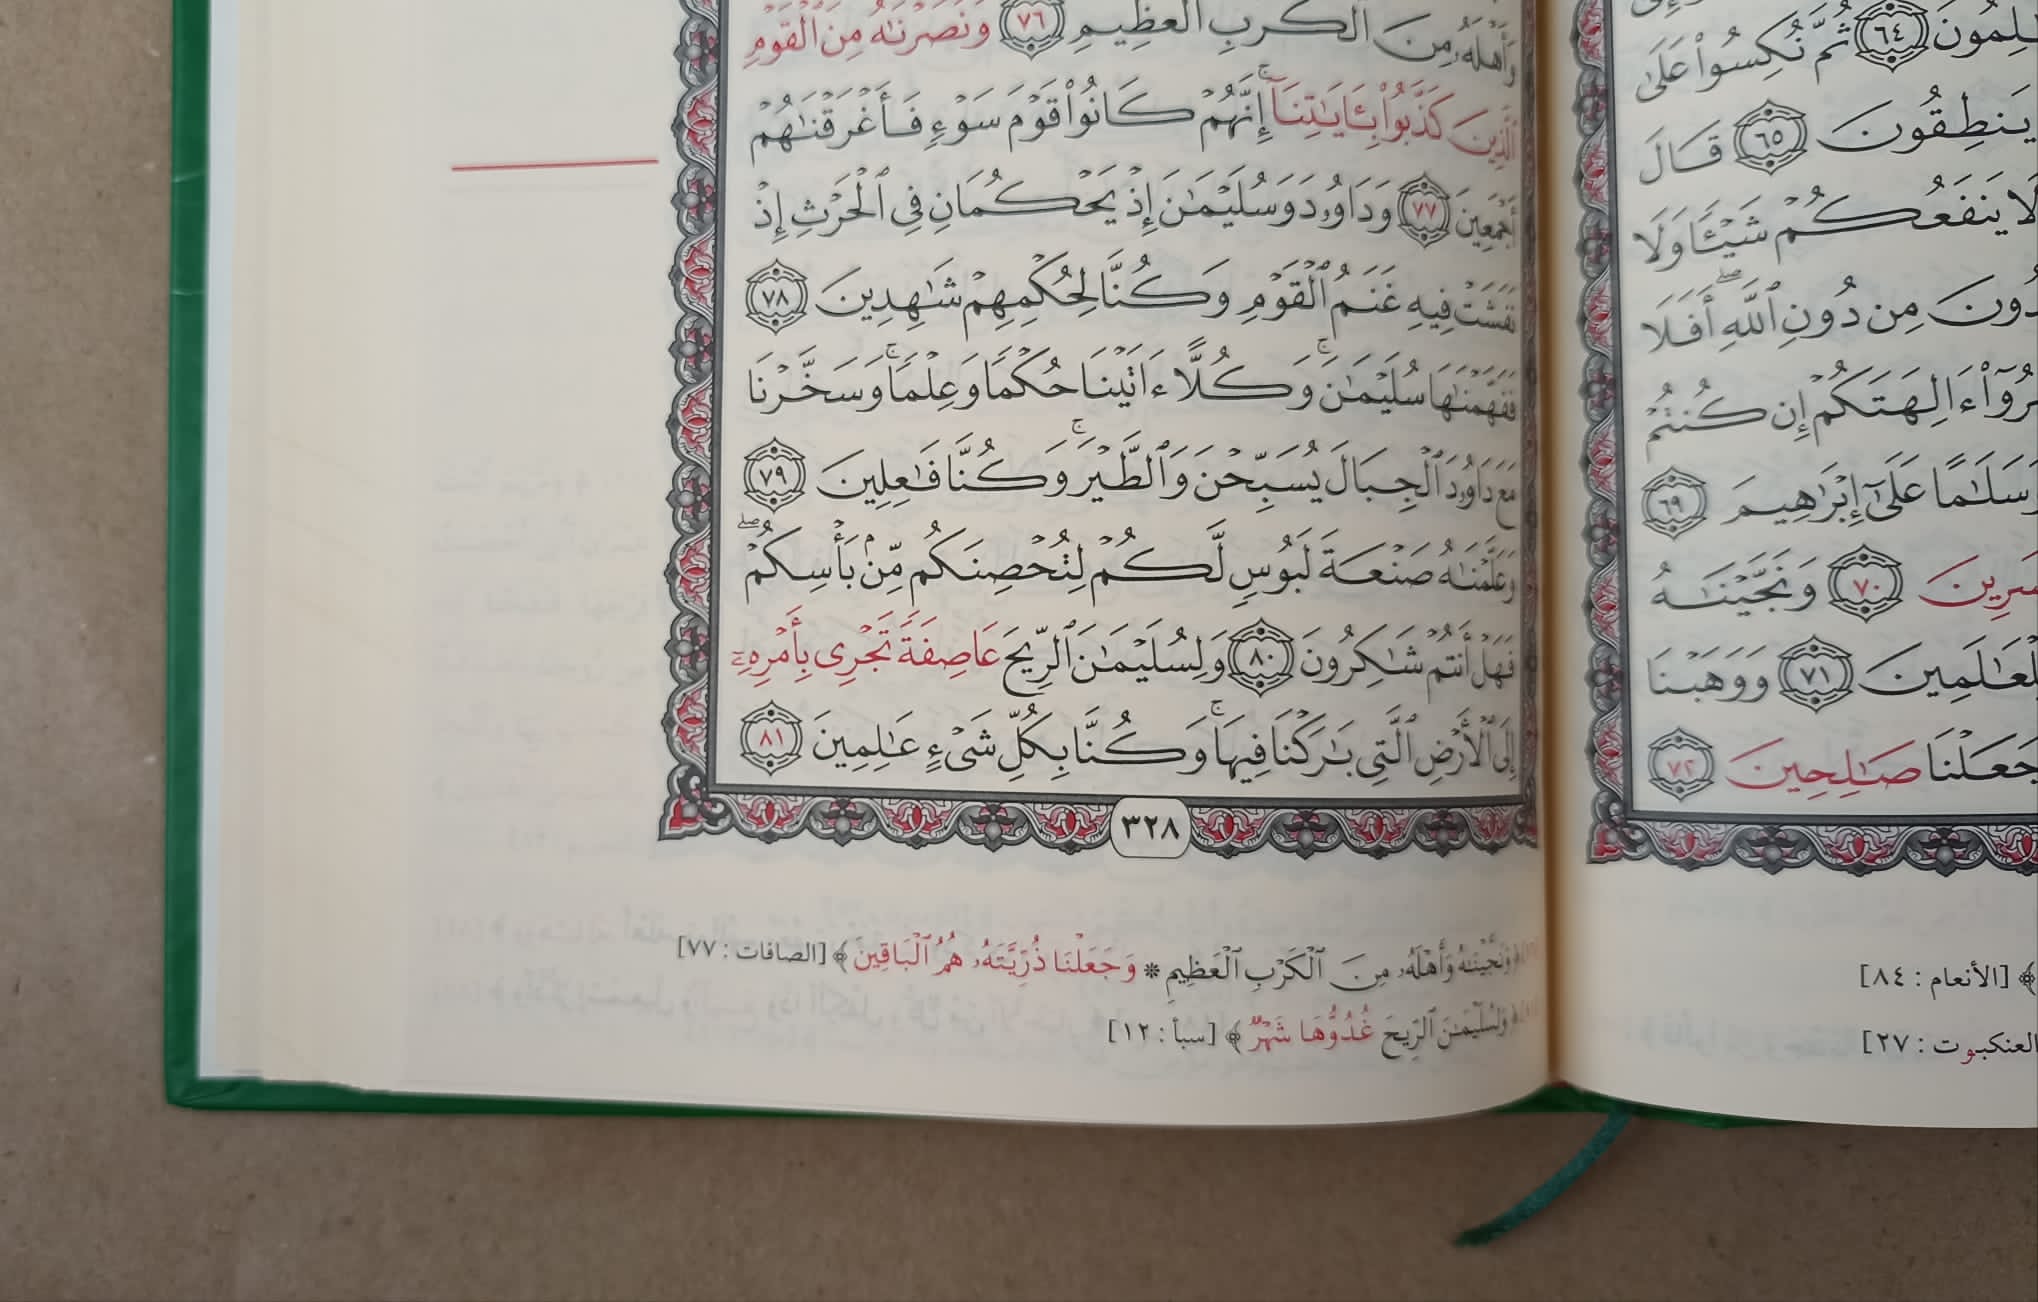 لِمُونَ ٦٤ ثُمَّ نُكِسُوا۟ عَلَىٰ
يَنطِقُونَ ٦٥ قَالَ
لَا يَنفَعُكُمْ شَيْـًٔا وَلَا
دُونَ مِن دُونِ ٱللَّهِ ۖ أَفَلَا
ءَالِهَتَكُمْ إِن كُنتُمْ
وَسَلَـٰمًا عَلَىٰٓ إِبْرَٰهِيمَ ٦٩
سَرِينَ ٧٠ وَنَجَّيْنَـٰهُ
لِلْعَـٰلَمِينَ ٧١ وَوَهَبْنَا
جَعَلْنَا صَـٰلِحِينَ ٧٢
﴾ [الأنعام : ٨٤]
العنكبوت : ٢٧]
وَأَهْلَهُۥ مِنَ ٱلْكَرْبِ ٱلْعَظِيمِ ٧٦ وَنَصَرْنَـٰهُ مِنَ ٱلْقَوْمِ
ٱلَّذِينَ كَذَّبُوا۟ بِـَٔايَـٰتِنَآ ۚ إِنَّهُمْ كَانُوا۟ قَوْمَ سَوْءٍ فَأَغْرَقْنَـٰهُمْ
أَجْمَعِينَ ٧٧ وَدَاوُۥدَ وَسُلَيْمَـٰنَ إِذْ يَحْكُمَانِ فِى ٱلْحَرْثِ إِذْ
نَفَشَتْ فِيهِ غَنَمُ ٱلْقَوْمِ وَكُنَّا لِحُكْمِهِمْ شَـٰهِدِينَ ٧٨
فَفَهَّمْنَـٰهَا سُلَيْمَـٰنَ ۚ وَكُلًّا ءَاتَيْنَا حُكْمًا وَعِلْمًا ۚ وَسَخَّرْنَا
مَعَ دَاوُۥدَ ٱلْجِبَالَ يُسَبِّحْنَ وَٱلطَّيْرَ ۚ وَكُنَّا فَـٰعِلِينَ ٧٩
وَعَلَّمْنَـٰهُ صَنْعَةَ لَبُوسٍ لَّكُمْ لِتُحْصِنَكُم مِّنۢ بَأْسِكُمْ ۖ
فَهَلْ أَنتُمْ شَـٰكِرُونَ ٨٠ وَلِسُلَيْمَـٰنَ ٱلرِّيحَ عَاصِفَةً تَجْرِى بِأَمْرِهِۦٓ
إِلَى ٱلْأَرْضِ ٱلَّتِى بَـٰرَكْنَا فِيهَا ۚ وَكُنَّا بِكُلِّ شَىْءٍ عَـٰلِمِينَ ٨١
٣٢٨
وَنَجَّيْنَـٰهُ وَأَهْلَهُۥ مِنَ ٱلْكَرْبِ ٱلْعَظِيمِ * وَجَعَلْنَا ذُرِّيَّتَهُۥ هُمُ ٱلْبَاقِينَ ﴾ [الصافات : ٧٧]
﴿ وَلِسُلَيْمَـٰنَ ٱلرِّيحَ غُدُوُّهَا شَهْرٌ ﴾ [سبأ : ١٢]